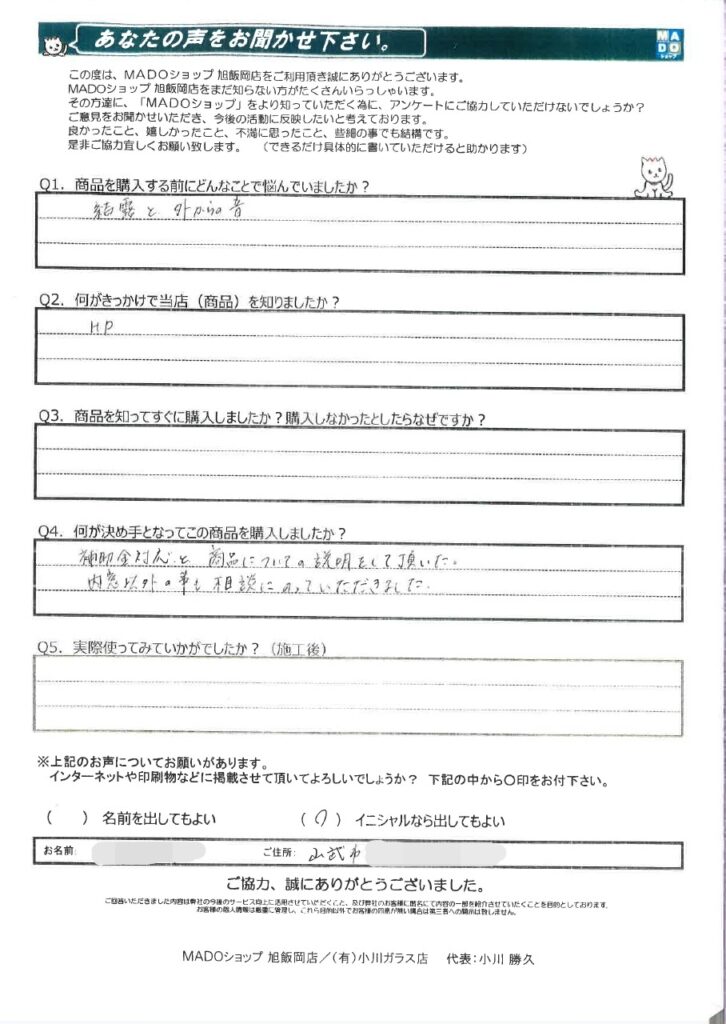 あなたの声をお聞かせ下さい。
MADO
ショップ
この度は、MADOショップ 旭飯岡店をご利用頂き誠にありがとうございます。
MADOショップ 旭飯岡店をまだ知らない方がたくさんいらっしゃいます。
その方達に、「MADOショップ」をより知っていただく為に、アンケートにご協力していただけないでしょうか？
ご意見をお聞かせいただき、今後の活動に反映したいと考えております。
良かったこと、嬉しかったこと、不満に思ったこと、些細の事でも結構です。
是非ご協力宜しくお願い致します。 （できるだけ具体的に書いていただけると助かります）
Q1．商品を購入する前にどんなことで悩んでいましたか？
結露と外からの音
Q2．何がきっかけで当店（商品）を知りましたか？
HP
Q3．商品を知ってすぐに購入しましたか？購入しなかったとしたらなぜですか？
Q4．何が決め手となってこの商品を購入しましたか？
補助金対応と商品についての説明をして頂いた。
内窓以外の事も相談にのっていただきました。
Q5．実際使ってみていかがでしたか？（施工後）
※上記のお声についてお願いがあります。
インターネットや印刷物などに掲載させて頂いてよろしいでしょうか？ 下記の中から○印をお付下さい。
（ ）名前を出してもよい （○）イニシャルなら出してもよい
お名前: ご住所: 山武市
ご協力、誠にありがとうございました。
ご回答いただきました内容は弊社の今後のサービス向上に活用させていただくこと、及び弊社のお客様に匿名にて内容の一部を紹介させていただくことを目的としております。
お客様の個人情報は厳重に管理し、これら目的以外でお客様の同意が無い場合は第三者への開示は致しません。
MADOショップ 旭飯岡店／(有)小川ガラス店 代表：小川 勝久